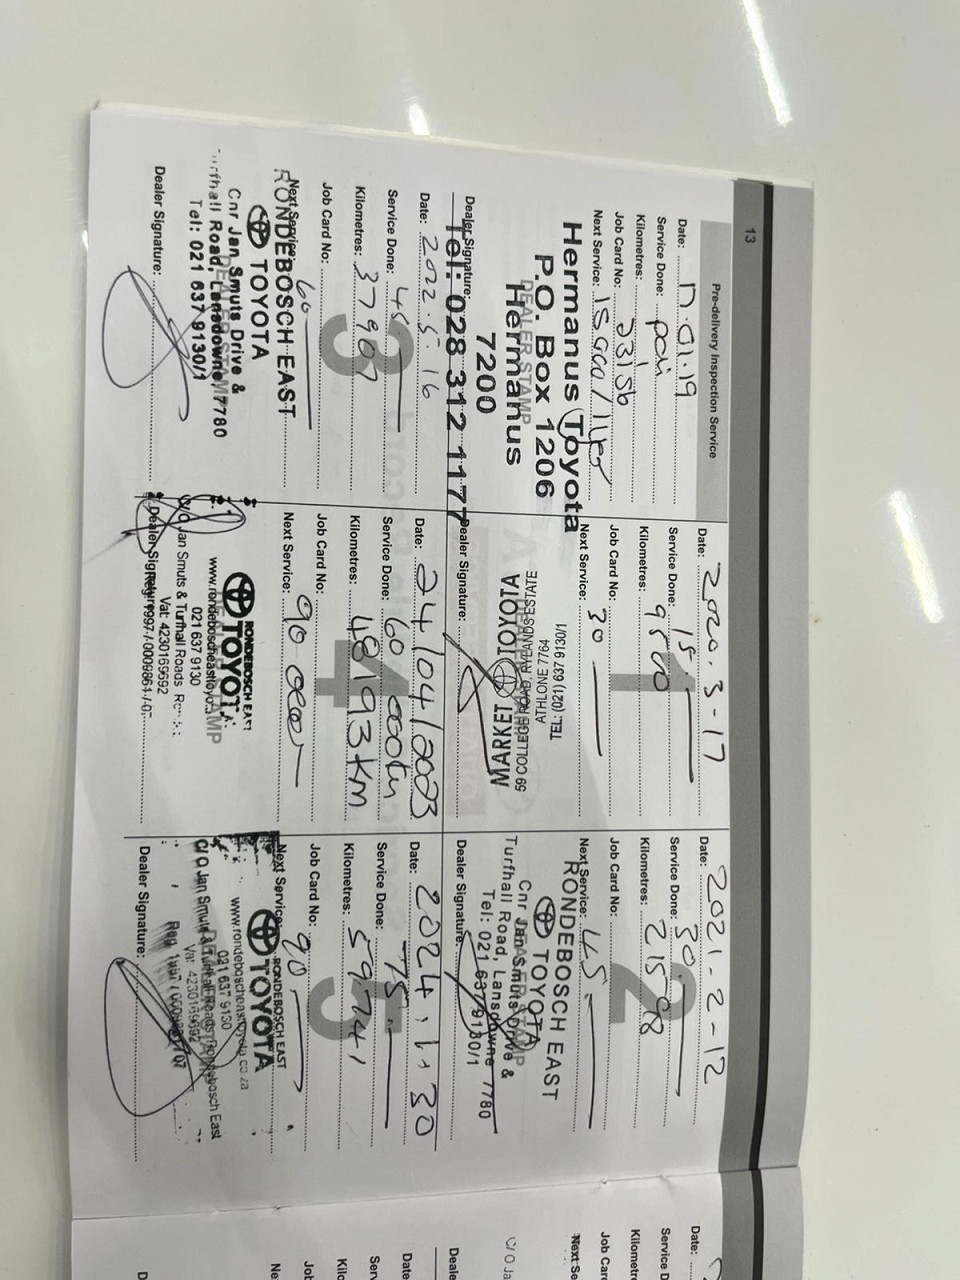 13
Pre-delivery Inspection Service
Date:
Service Done: PDI
Kilometres:
Job Card No: 23156
Next Service:
Hermanus Toyota
P.O. Box 1206
DEALER STAMP
Hermanus
7200
Dealer Signature:
Tel: 028 312 1177
1
Date: 2020.3-17
Service Done: 15
Kilometres: 9500
Job Card No:
Next Service: 30
MARKET TOYOTA
59 COLLEGE ROAD, RYLANDS ESTATE
ATHLONE 7764
TEL: (021) 637 9130/1
Dealer Signature:
2
Date: 2021-2-12
Service Done: 30
Kilometres: 21598
Job Card No:
Next Service: 45
RONDEBOSCH EAST
TOYOTA
Cnr Jan Smuts Drive &
Turfhall Road, Lansdowne 7780
Tel: 021 637 9130/1
Dealer Signature:
3
Date: 2022.5.16
Service Done: 45
Kilometres: 37907
Job Card No:
Next Service: 60
RONDEBOSCH EAST
TOYOTA
Cnr Jan Smuts Drive &
DEALER STAMP
Turfhall Road, Lansdowne 7780
Tel: 021 637 9130/1
Dealer Signature:
4
Date: 24/04/2023
Service Done: 60 000km
Kilometres: 48193km
Job Card No:
Next Service: 90 000
RONDEBOSCH EAST
TOYOTA
www.rondeboscheasttoyo
021 637 9130
Vat: 4230169692
C/O Jan Smuts & Turfhall Roads
Dealer Signature:
5
Date: 2024.11.30
Service Done: 75
Kilometres: 59741
Job Card No:
Next Service: 90
RONDEBOSCH EAST
TOYOTA
www.rondeboscheasttoyota.co.za
021 637 9130
Vat: 4230169692
C/O Jan Smuts & Turfhall Roads Rondebosch East
Dealer Signature:
Date:
Service D
Kilometres:
Job Card No:
Next Se
C/O Ja
Deale
Date:
Serv
Kilo
Job
Ne
D